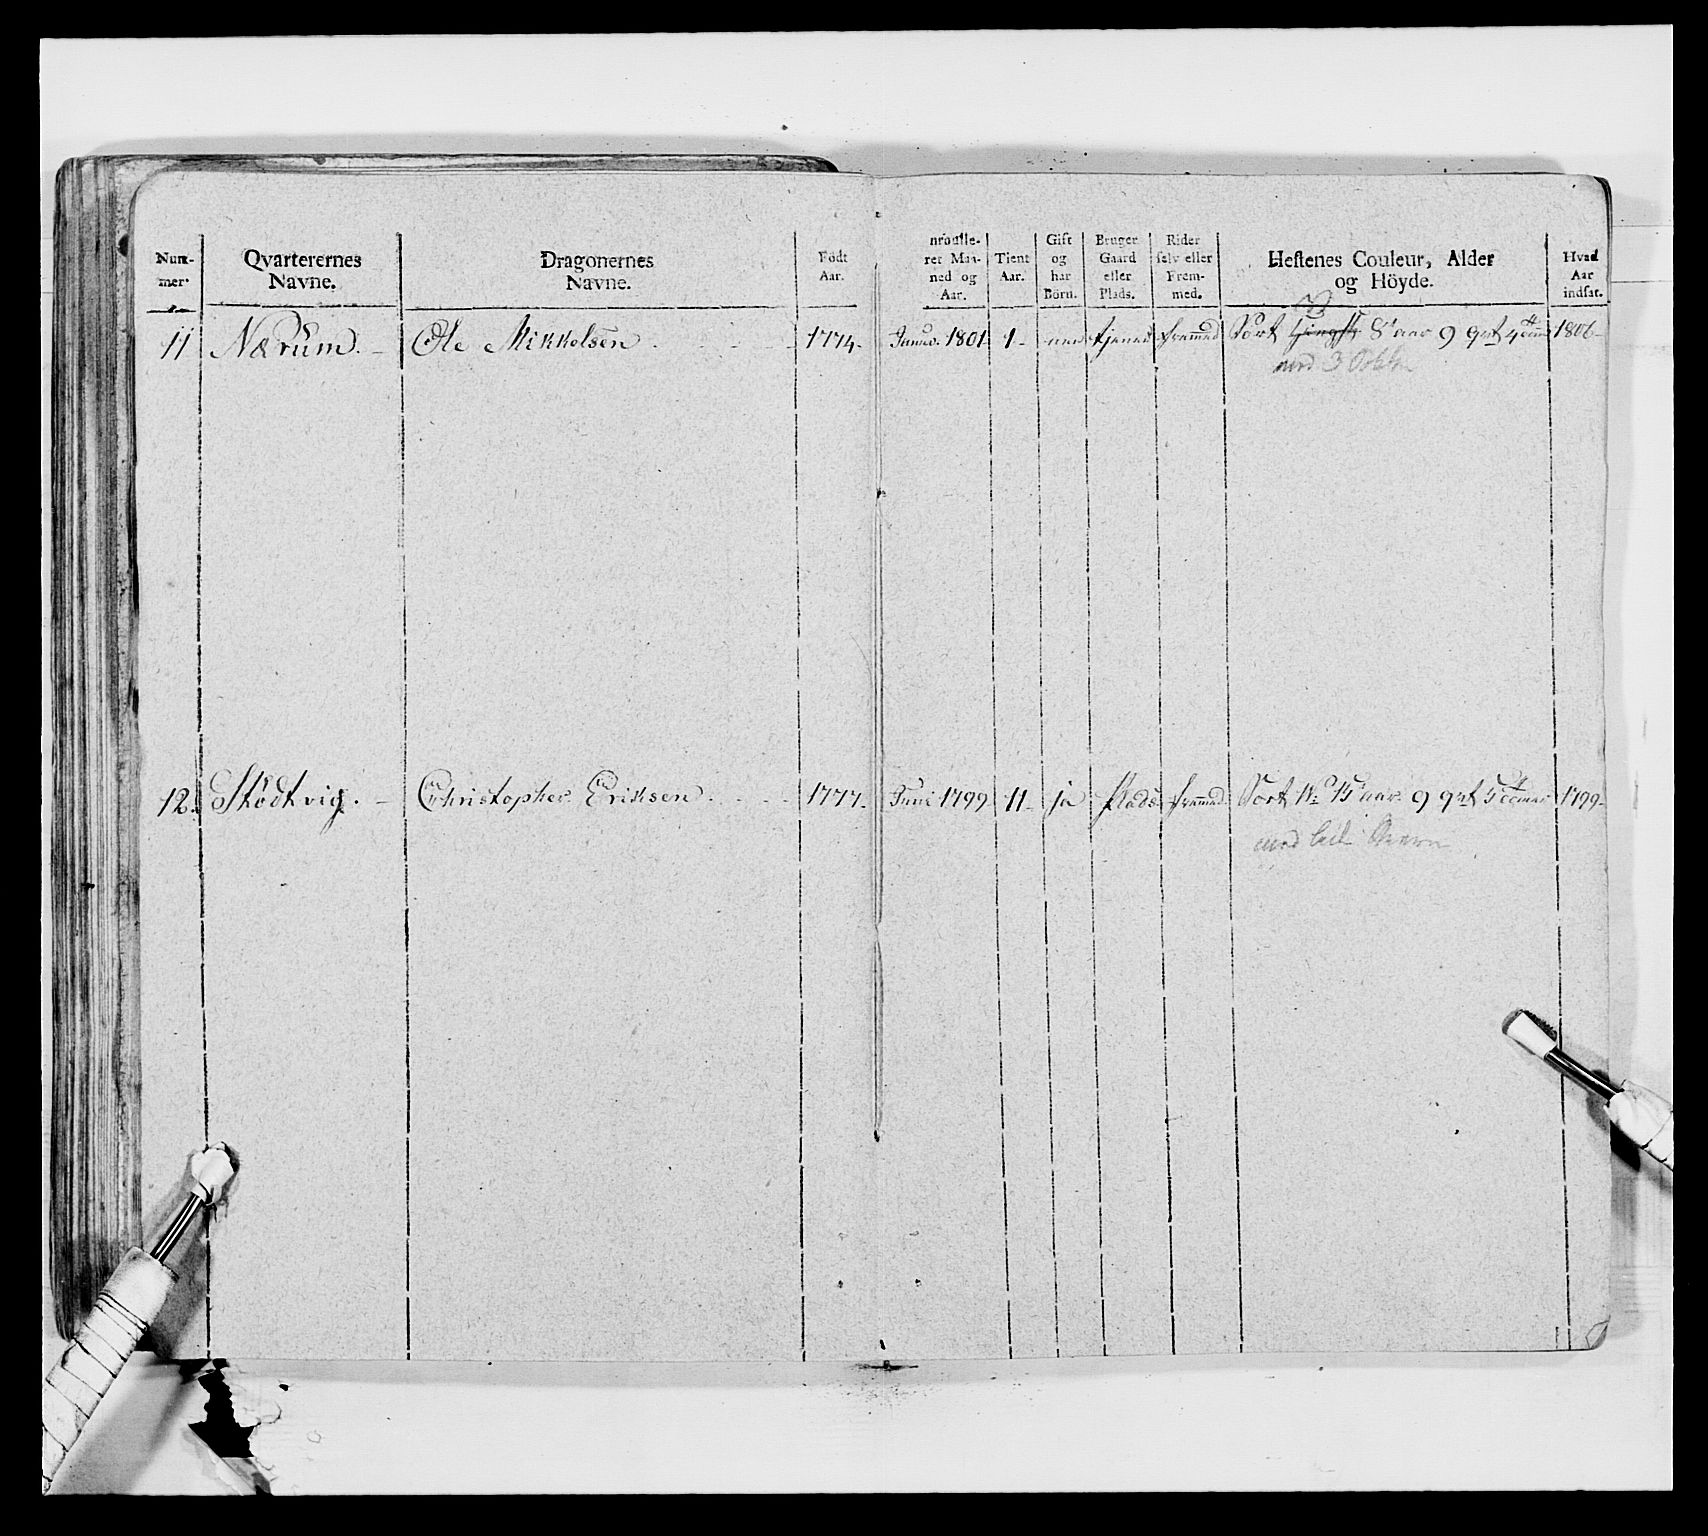 Num-
mer.
Qvarterernes
Navne.
Dragonernes
Navne.
Födt
Aar.
nroulle-
ret Maa-
ned og
Aar.
Tient
Aar.
Gift
og
har
Börn.
Bruger
Gaard
eller
Plads.
Rider
selv eller
Frem-
med.
Hestenes Couleur, Alder
og Höyde.
Hvad
Aar
indsat.
11 Nærum. Ole Mikkelsen. 1774. Janv. 1801 1 tjener fremmed Sort 8 aar 9 qvt 1806
med 3
12. Stödtvig. Christopher Eriksen. 1777. Juni 1799 11 ja Plads fremmed Sort 15 aar 9 qvt 1799